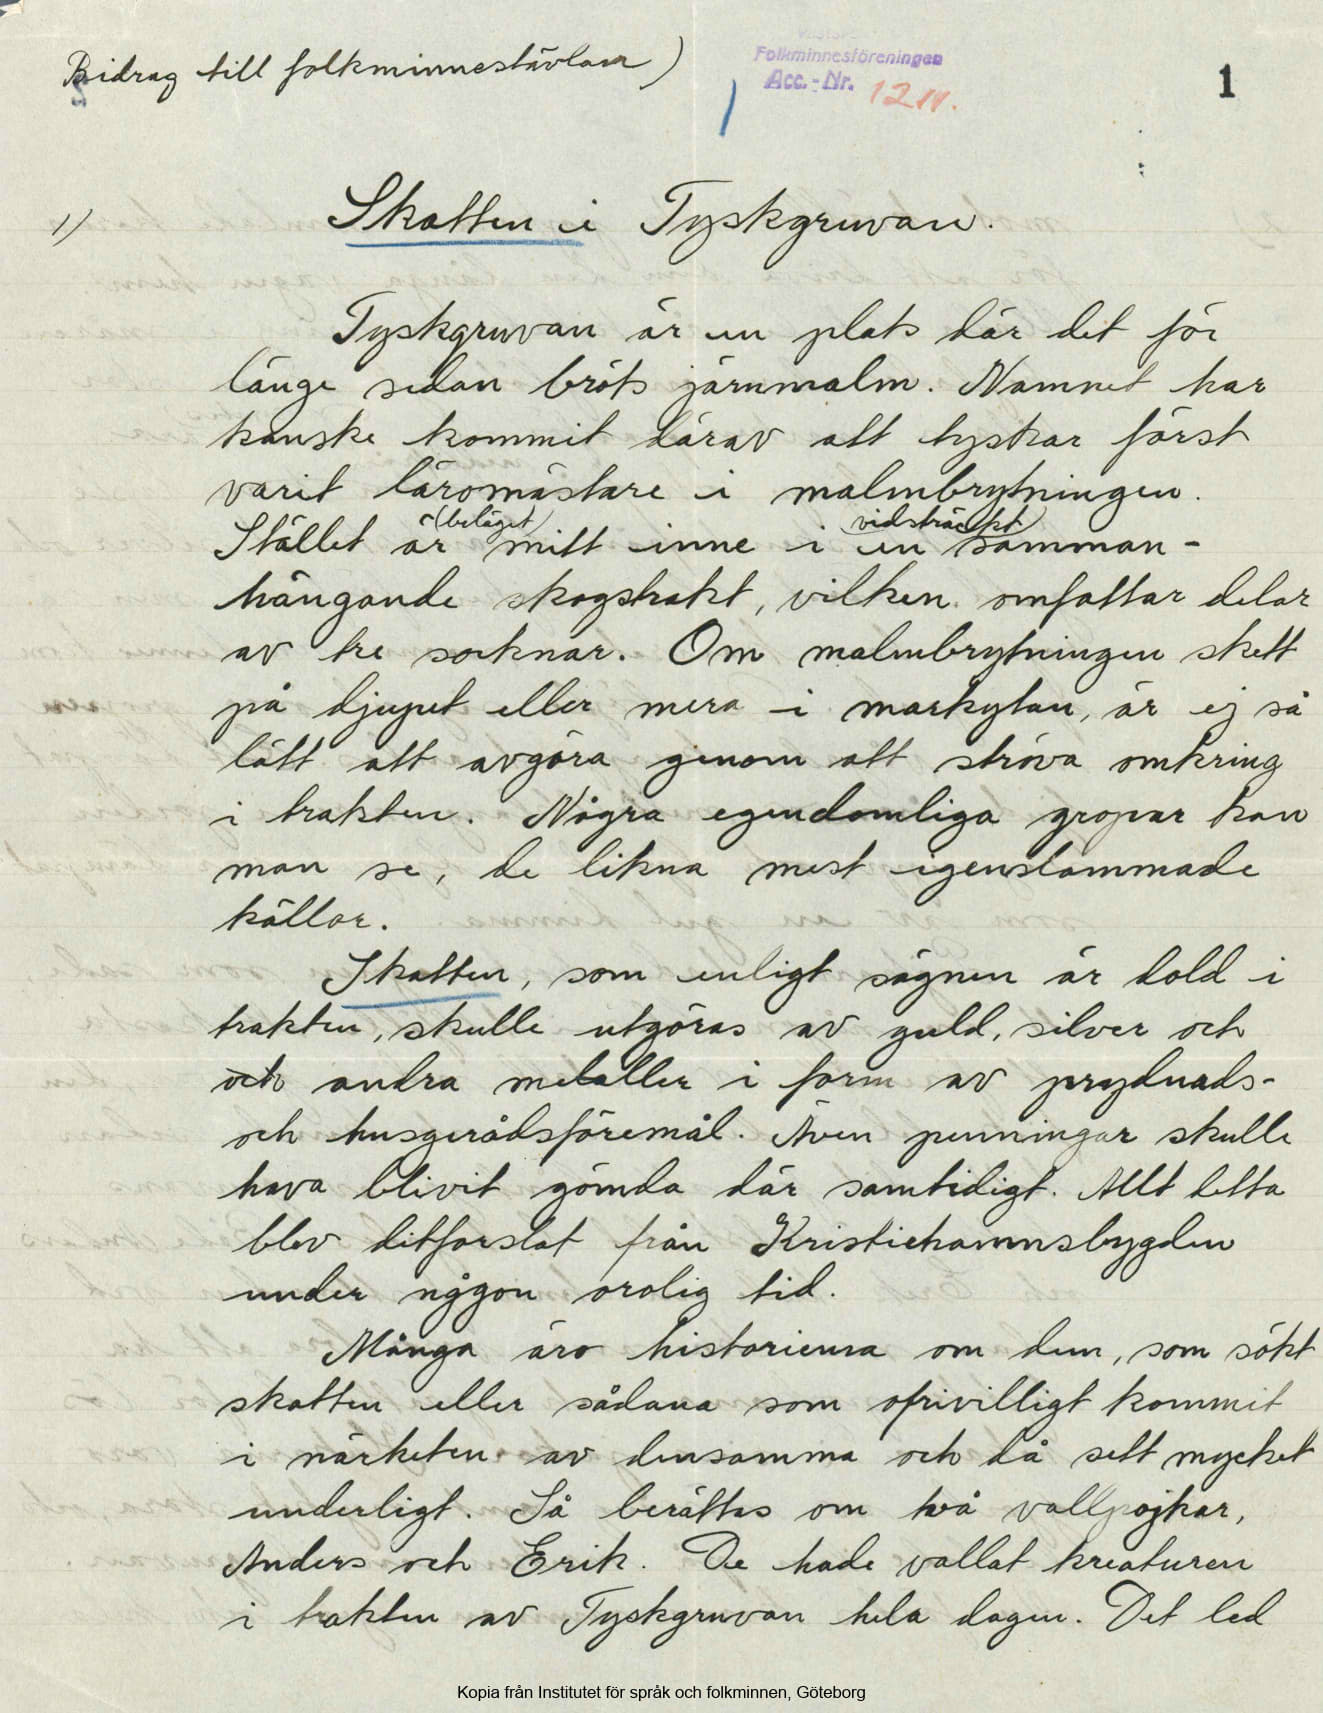 Bidrag till folkminnestävlan)
Folkminnesföreningen
Acc.-Nr. 1211.
1
1) Skatten i Tyskgruvan.
Tyskgruvan är en plats där det för
länge sedan bröts järnmalm. Namnet har
kanske kommit därav att tyskar först
varit läromästare i malmbrytningen.
(beläget) vidsträckt)
Stället är mitt inne i en samman-
hängande skogstrakt, vilken omfattar delar
av tre socknar. Om malmbrytningen skett
på djupet eller mera i markytan, är ej så
lätt att avgöra genom att ströva omkring
i trakten. Några egendomliga gropar kan
man se, de likna mest igenslammade
källor.
Skatten, som enligt sägnen är dold i
trakten, skulle utgöras av guld, silver och
och andra metaller i form av prydnads-
och husgerådsföremål. Även penningar skulle
hava blivit gömda där samtidigt. Allt detta
blev ditforslat från Kristiehamnsbygden
under någon orolig tid.
Många äro historierna om dem, som sökt
skatten eller sådana som ofrivilligt kommit
i närheten av densamma och då sett mycket
underligt. Så berättas om två vallpojkar,
Anders och Erik. De hade vallat kreaturen
i trakten av Tyskgruvan hela dagen. Det led
Kopia från Institutet för språk och folkminnen, Göteborg